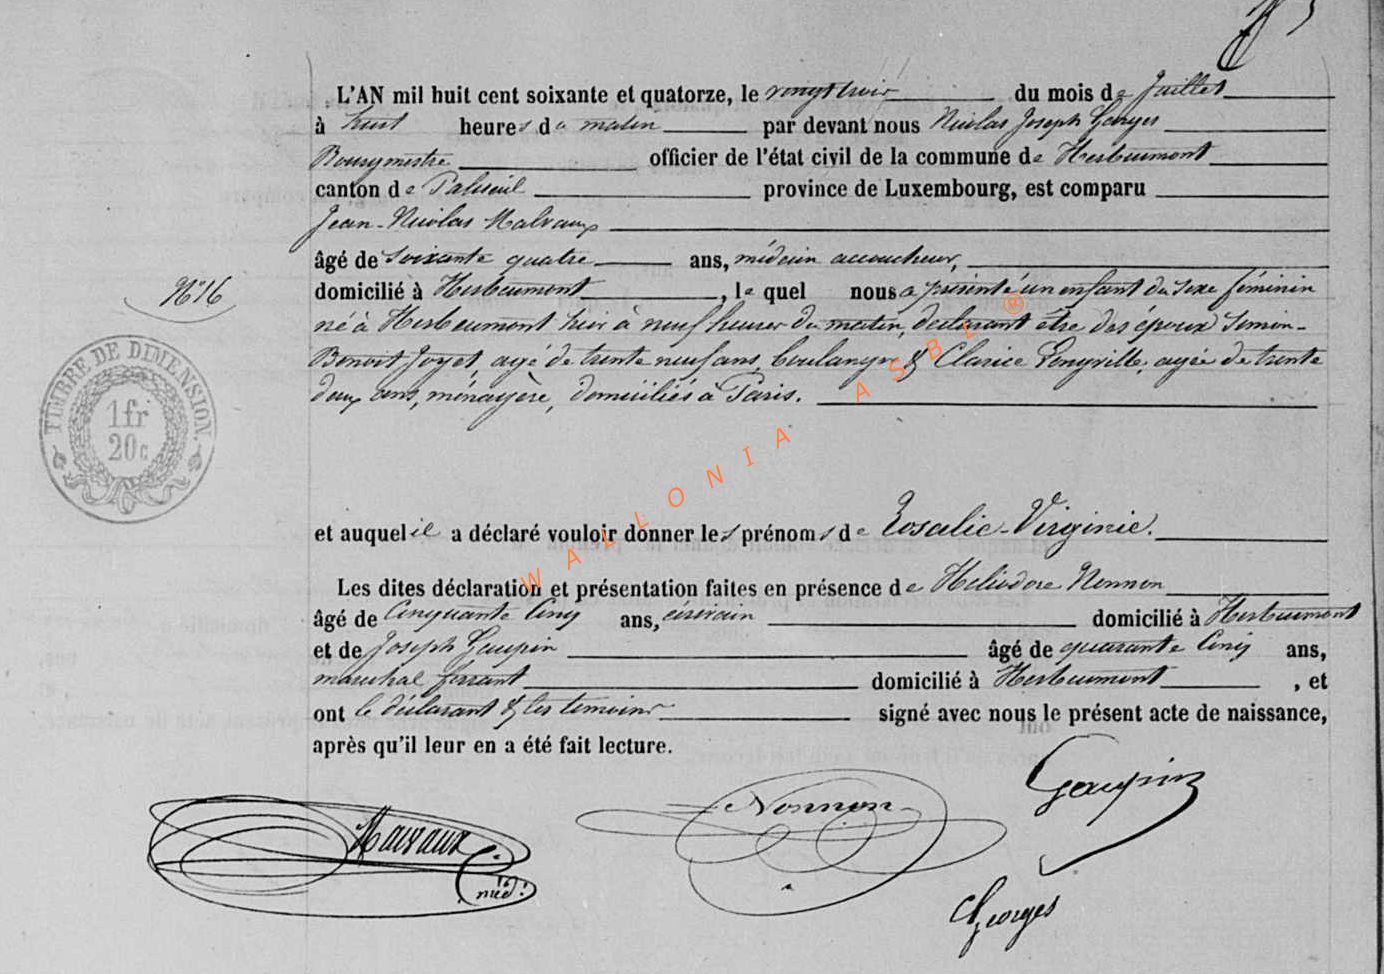 L'AN mil huit cent soixante et quatorze, le vingt trois du mois de Juillet
à huit heures du matin par devant nous Nicolas Joseph Georges
Bourgmestre officier de l'état civil de la commune de Herbeumont
canton de Paliseul province de Luxembourg, est comparu
Jean-Nicolas Malvaux
âgé de soixante quatre ans, médecin accoucheur,
N° 16
domicilié à Herbeumont, le quel nous a présenté un enfant du sexe féminin
né à Herbeumont hier à neuf heures du matin, déclarant être des époux Simin-
Benoit Joyet, agé de trente neuf ans, boulanger & Clarice, agée de trente
deux ans, ménagère, domiciliés à Paris.
TIMBRE DE DIMENSION.
1fr
20c
et auquel il a déclaré vouloir donner les prénoms de Rosalie-Virginie.
Les dites déclaration et présentation faites en présence de Héliodore Nonnon
âgé de Cinquante Cinq ans, écrivain domicilié à Herbeumont
et de Joseph Gaupin âgé de quarante Cinq ans,
maréchal ferrant domicilié à Herbeumont, et
ont le déclarant & les témoins signé avec nous le présent acte de naissance,
après qu'il leur en a été fait lecture.
Gaupin
Nonnon
Malvaux
Georges
WALLONIA ASBL ®